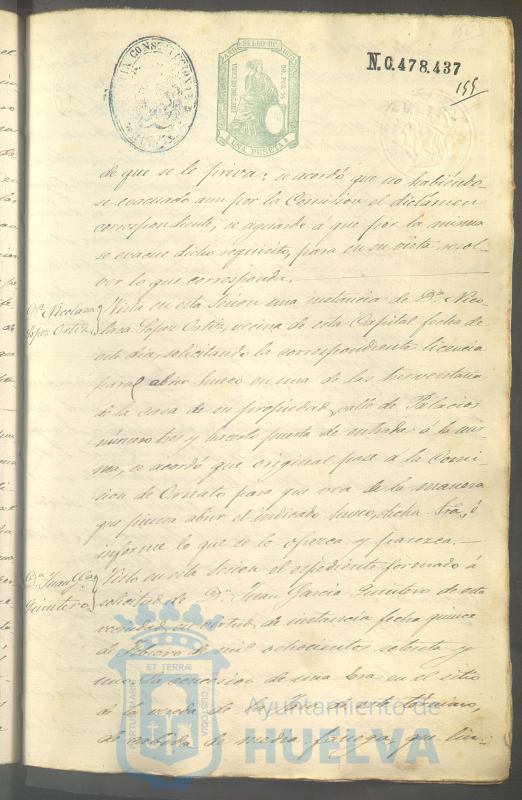 N. 0.478.437
155
UNA PESETA
de que se le priva: se acordó que no habiéndo-
se evacuado aun por la Comision el dictamen
correspondiente, se aguarde á que por la misma
se evacue dicho requisito, para en su vista resol-
ver lo que corresponda.
Dª Nicolasa
Lopez Ortiz,
Vista en esta sesion una instancia de Dª Nico-
lasa Lopez Ortiz, vecina de esta Capital fecha de
este dia, solicitando la correspondiente licencia
para abrir hueco en una de las tres ventanas
de la casa de su propiedad, calle de Palacios
número tres y hacerlo puerta de entrada á la mis-
ma, se acordó que original pase á la Comi-
sion de Ornato para que vea de la manera
que piensa abrir el indicado hueco, dicha Sra, é
informe lo que se le ofrezca y parezca.—
Juan Gª
Quintero
Visto en esta sesion el expediente formado á
solicitud de Dn Juan Garcia Quintero de esta
vecindad, en virtud de instancia fecha quince
de Febrero de mil ochocientos setenta y
uno, la concesion de una Era en el sitio
de la vereda de de este término,
de cabida de media fanega, que lin-
ET TERRÆ
PORTUS MARIS
CUSTODIA
Ayuntamiento de
HUELVA